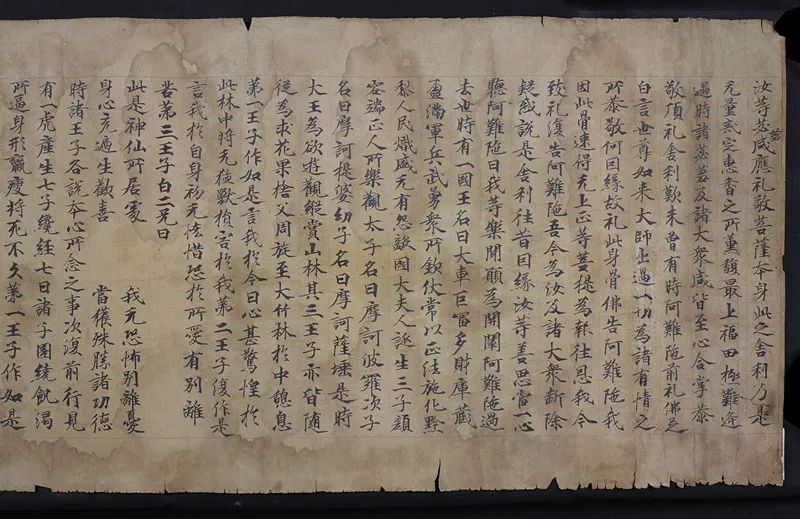 汝等苾芻咸應礼敬菩薩本身此之舍利乃是
无量戒定惠香之所熏馥最上福田極難逢
遇時諸苾芻及諸大衆咸皆至心合掌恭
敬頂礼舍利歎未曾有時阿難陁前礼佛足
白言世尊如来大師出過一切為諸有情之
所恭敬何因縁故礼此身骨佛告阿難陁我
因此骨速得无上正等菩提為報往恩我今
致礼復告阿難陁吾今為汝及諸大衆斷除
疑惑說是舍利往昔因縁汝等善思當一心
聽阿難陁曰我等樂聞願為開闡阿難陁過
去世時有一國王名曰大車巨冨多財庫藏
盈滿軍兵武勇衆所欽伏常以正法施化黔
黎人民熾盛无有怨敵國大夫人誕生三子顔
容端正人所樂觀太子名曰摩訶波羅次子
名曰摩訶提婆幼子名曰摩訶薩埵是時
大王為欲遊觀縱賞山林其三王子亦皆随
從為求花果捨父周旋至大竹林於中憩息
第一王子作如是言我於今日心甚驚惶於
此林中將无猛獸損害於我第二王子復作是
言我於自身初无恡惜恐於所愛有別離
苦第三王子白二兄曰
此是神仙所居處　我无恐怖別離憂
身心充遍生歡喜　當獲殊勝諸功德
時諸王子各說本心所念之事次復前行見
有一虎產生七子纔經七日諸子圍繞飢渴
所逼身形羸瘦將死不久第一王子作如是